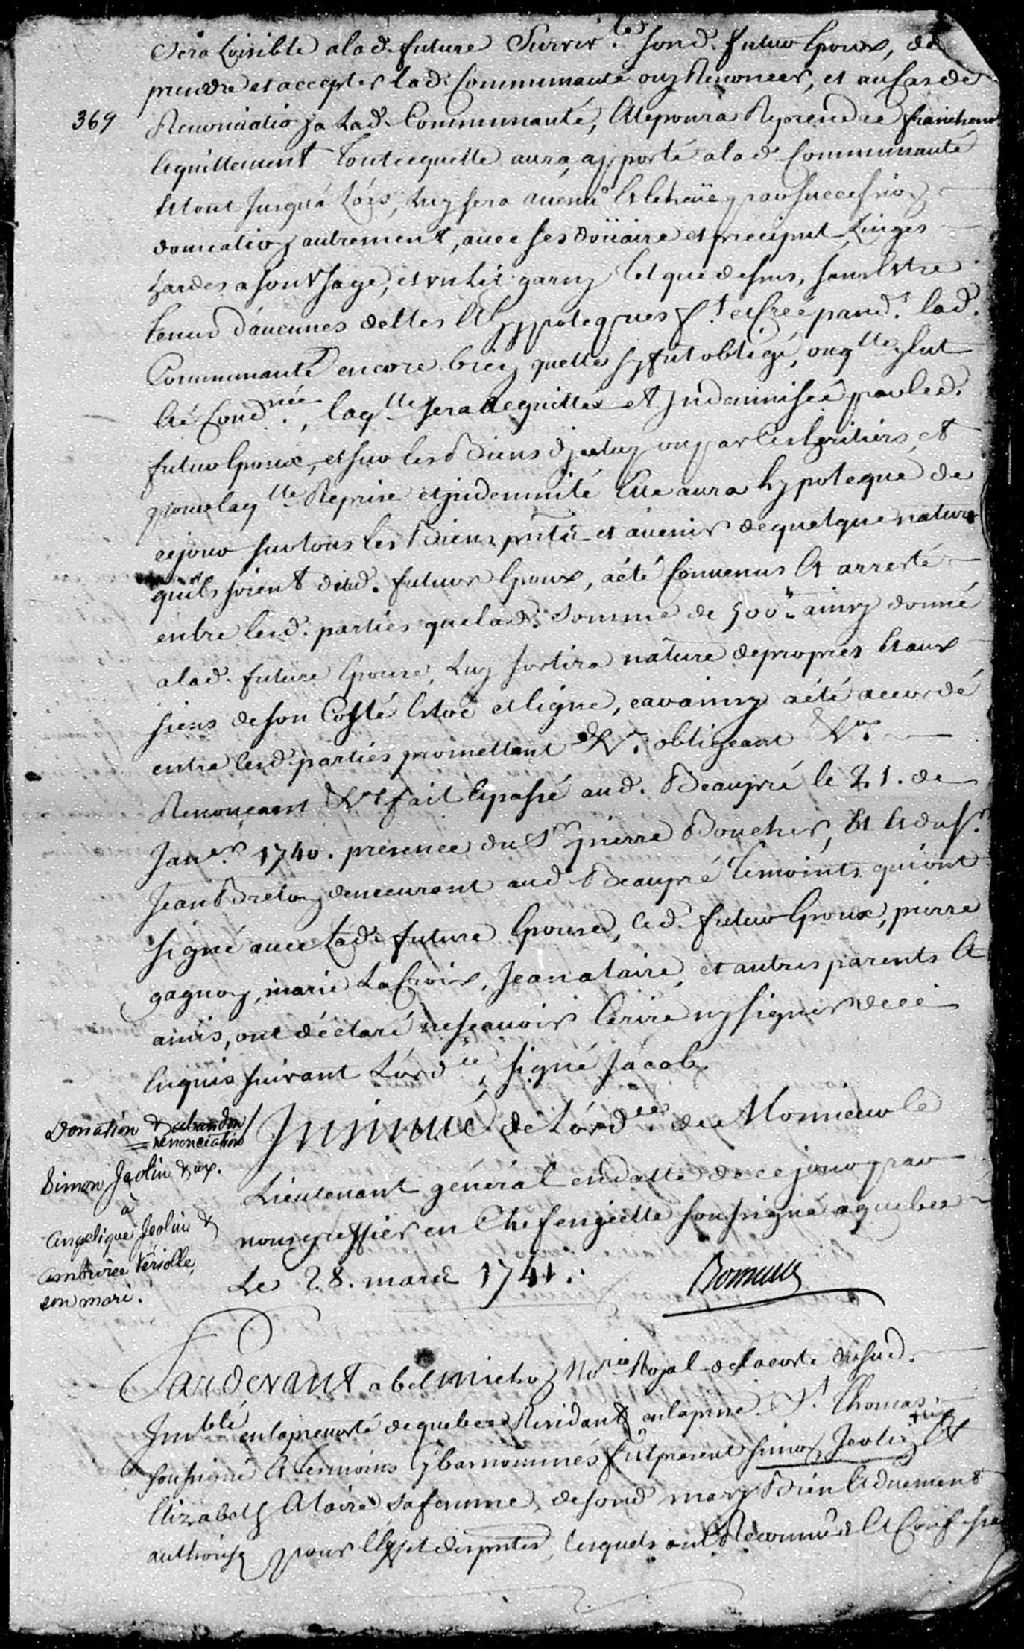 Sera Loisible a lad. future Surviv.te sond. futur Epoux, de
prendre et accepter lad. Communauté ou y Renoncer, et au Cas de
369
Renonciation a Lad. Communauté, Elle poura Reprendre franchemt
Et quittement tout ce quelle aura apporté a lad. Communauté
Et tout Jusqu'a Lors, Luy sera avenu Et Echeüe par succession
donnation autrement, avec ses doüaire et preciput Linges
hardes a son Usage, et un Lit garny tel que dessus, sans Estre
tenue d'aucunes dettes Et hypoteques de lad.
Communauté encore bien quelle s'y fut obligé, ou qlle y fut
Eté Condnée, laqlle sera acquittée Et Indemnisée par led.
futur Epoux, et sur les Biens d'jceluy ou par les heritiers, et
pour laqlle Reprise et jndemnité Elle aura hypoteque de
ce jour sur tous les Biens pnts et avenir de quelque nature
qu'ils soient dud. futur Epoux, a été Convenus Et arresté
entre lesd. parties que lad. Somme de 500lt ainsy donné
a lad. future Epouse, Luy sortira nature de propres Et aux
siens de son Costé Estoc et Ligne, car ainsy a été accordé
entre lesd. parties promettant &a. obligeant &a.
Renonçant &a fait Et passé aud. Beaupré le 21. de
Janer. 1740. presence du Sr pierre Boucher, Et du Sr.
Jean Breton demeurant aud. Beaupré temoints qui ont
signé avec Lad. future Epouse, led. futur Epoux, pierre
gagnon, marie LaCroix, Jean alaire, et autres parents Et
amis, ont déclaré ne sçavoir Ecrire ny signer de ce
Enquis suivant L'ordce, signé Jacob.
Donation & abandon
renonciation
Simon Jeolin & ux.
à
Angelique Jeolin &
Ambroise Veriolle,
son mari.
Insinué de L'ordce. de Monsieur le
Lieutenant général en datte de ce jour par
nous greffier en Chef en jcelle soussigné a quebec
Le 28. mard 1741.
Boisseau
Pardevant abel michon Nore Royal de la coste du sud.
Imblé en la prevosté de quebec Residant en la prie St. Thomas
soussigné Et temoins cy bas nommés fut present simon Jeolin Et
Elizabeth Alaire sa femme, de sond. mary Bien Et duement
authorisé pour L'effet des pntes, lesquels ont Reconnu Et Confessé